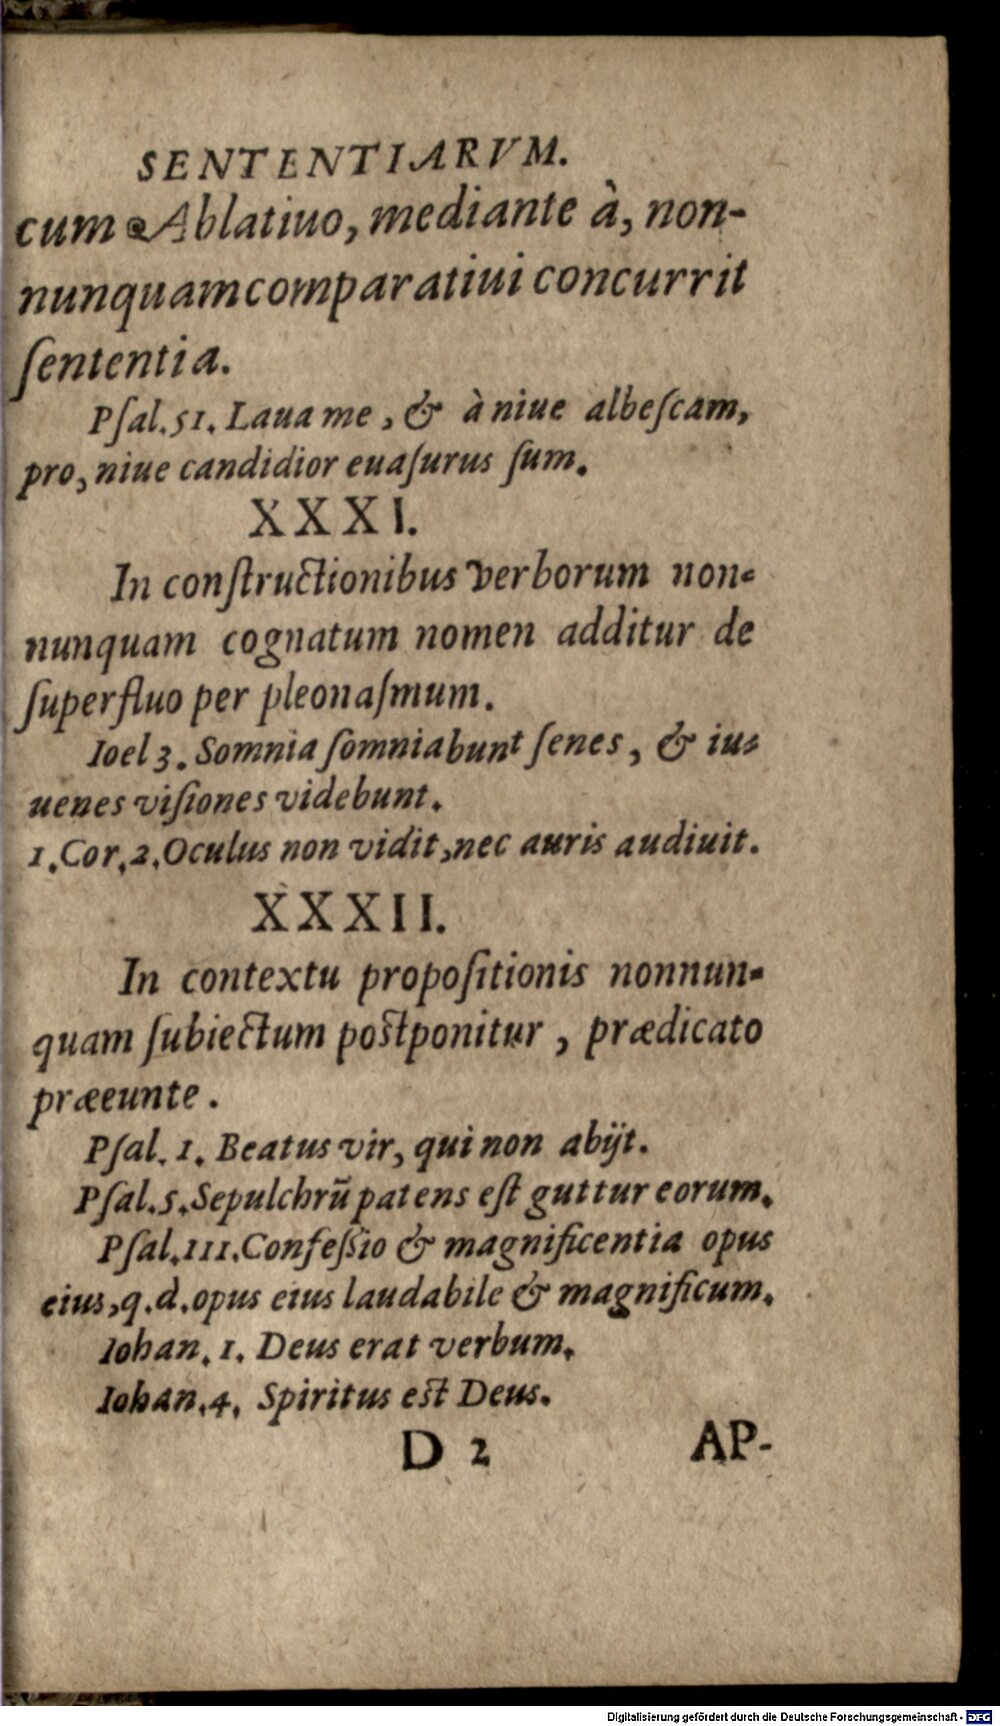 SENTENTIARVM.
cum Ablatiuo, mediante à, non-
nunquam comparatiui concurrit
ſententia.
Pſal. 51. Laua me, & à niue albeſcam,
pro, niue candidior euaſurus ſum.
XXXI.
In conſtructionibus verborum non-
nunquam cognatum nomen additur de
ſuperfluo per pleonaſmum.
Ioel 3. Somnia ſomniabunt ſenes, & iu-
uenes viſiones videbunt.
1. Cor. 2. Oculus non vidit, nec auris audiuit.
XXXII.
In contextu propoſitionis nonnun-
quam ſubiectum poſtponitur, prædicato
præeunte.
Pſal. 1. Beatus vir, qui non abijt.
Pſal. 5. Sepulchrū patens eſt guttur eorum.
Pſal. 111. Confeſsio & magnificentia opus
eius, q. d. opus eius laudabile & magnificum.
Iohan. 1. Deus erat verbum.
Iohan. 4. Spiritus eſt Deus.
D 2 AP-
Digitalisierung gefördert durch die Deutsche Forschungsgemeinschaft - DFG